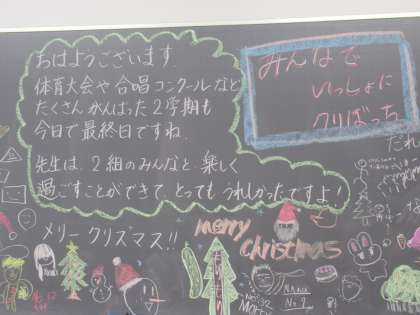 おはようございます.
体育大会や合唱コンクールなど
たくさんがんばった2学期も
今日で最終日ですね.
先生は、2組のみんなと楽しく
過ごすことができて、とってもうれしかったですよ!
メリークリズマス!!
みんなで
いっしょに
クリぼっち
だれ
merry
christmas